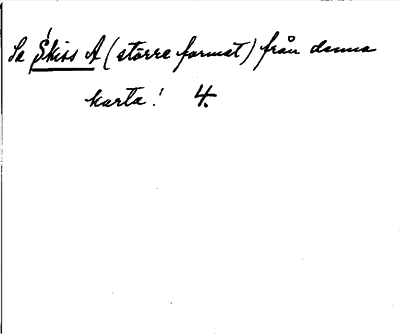 Se Skiss A (större format) från denna
karta! 4.